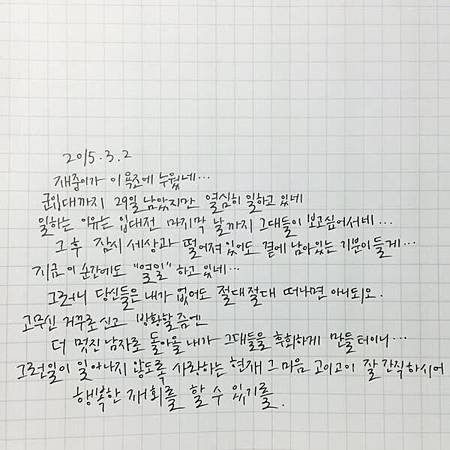 2015.3.2
재중이가 이 욕조에 누웠네...
군입대까지 29일 남았지만 열심히 일하고 있네
일하는 이유는 입대전 마지막 날까지 그대들이 보고싶어서네...
그 후 잠시 세상과 떨어져 있어도 곁에 남아있는 기분이 들게...
지금 이 순간에도 "열일" 하고 있네...
그러니 당신들은 내가 없어도 절대절대 떠나면 아니되오.
고무신 거꾸로 신고 방황할 즘엔
더 멋진 남자로 돌아올 내가 그대들을 후회하게 만들 터이니...
그런일이 일어나지 않도록 사랑하는 현재 그 마음 고이고이 잘 간직하시어
행복한 재회를 할 수 있기를.